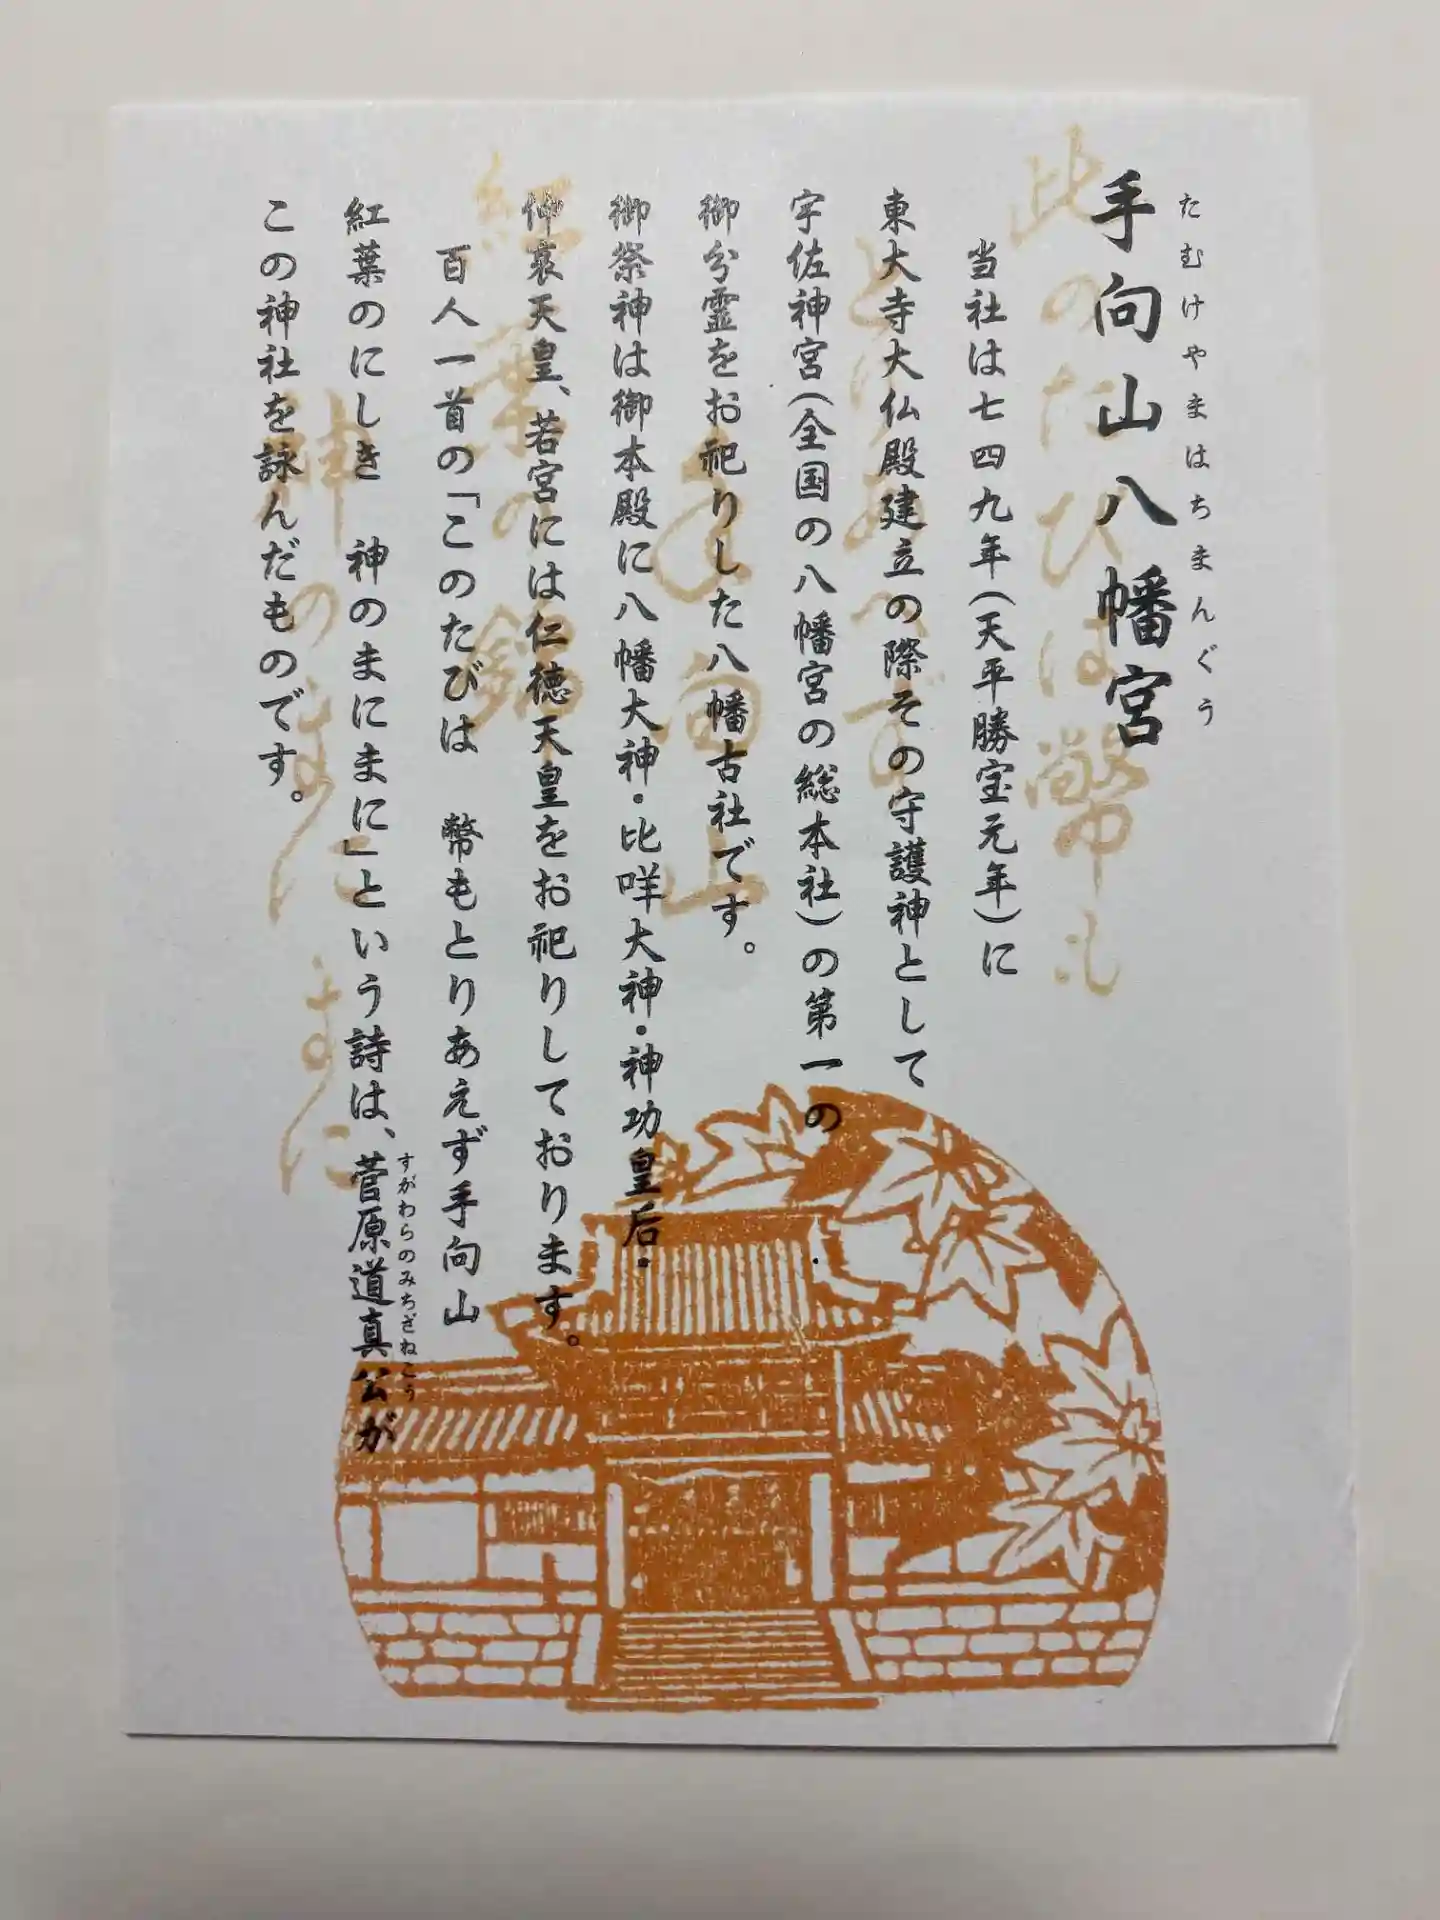 手向山八幡宮
たむけやまはちまんぐう
当社は七四九年(天平勝宝元年)に
東大寺大仏殿建立の際その守護神として
宇佐神宮(全国の八幡宮の総本社)の第一の
御分霊をお祀りした八幡古社です。
御祭神は御本殿に八幡大神・比咩大神・神功皇后・
仲哀天皇、若宮には仁徳天皇をお祀りしております。
百人一首の「このたびは 幣もとりあえず手向山
紅葉のにしき 神のまにまに」という詩は、菅原道真公が
すがわらのみちざねこう
この神社を詠んだものです。
此のたひは幣も
とりあへす
手向山
紅葉の錦
神のまに
まに